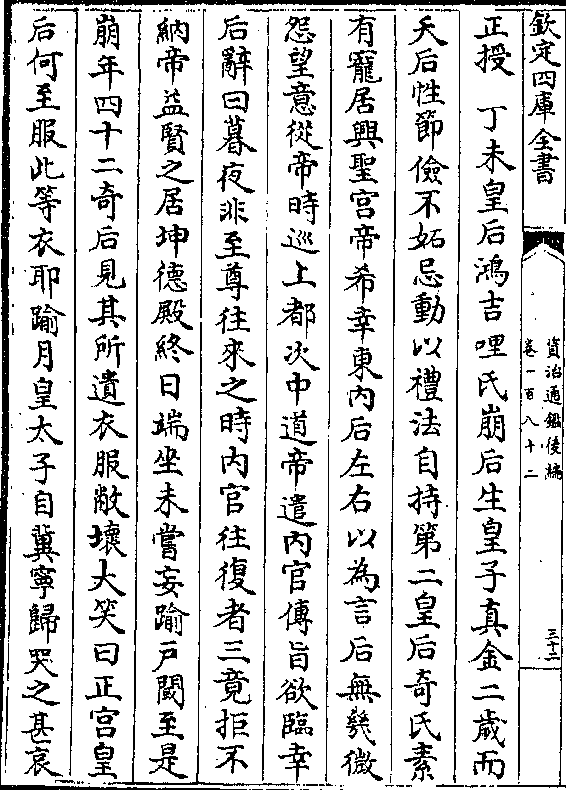 欽定四庫全書
資治通鑑後編
卷一百八十二
三十二
正授 丁未皇后鴻吉哩氏崩后生皇子真金二歲而
夭后性節儉不妬忌動以禮法自持第二皇后奇氏素
有寵居興聖宫帝希幸東内后左右以為言后無㡬微
怨望意從帝時巡上都次中道帝遣内官傳旨欲臨幸
后辭曰暮夜非至尊往來之時内官往復者三竟拒不
納帝益賢之居坤德殿終日端坐未嘗妄踰戶閾至是
崩年四十二奇后見其所遺衣服敝壞大笑曰正宫皇
后何至服此等衣耶踰月皇太子自冀寧歸哭之甚哀